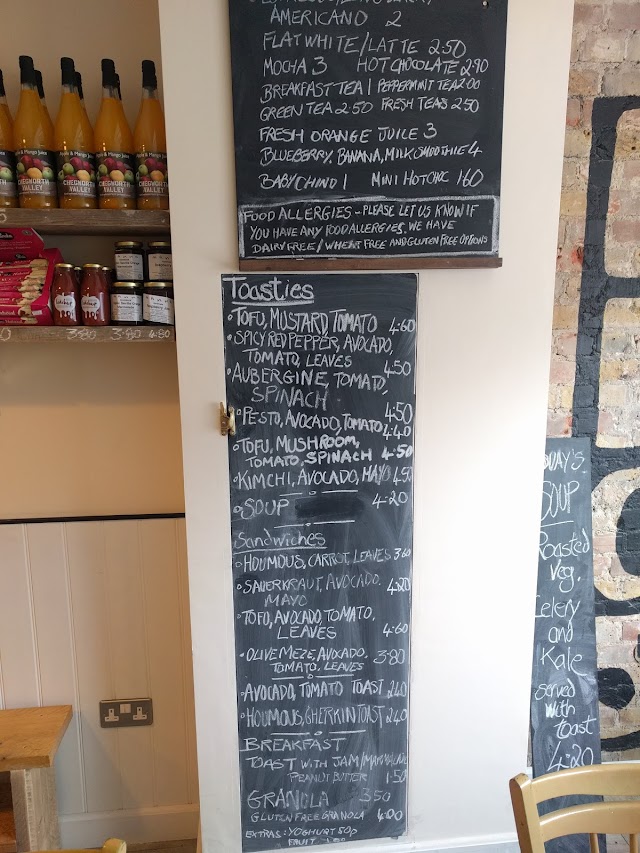 AMERICANO 2
FLAT WHITE/LATTE 2.50
MOCHA 3 HOT CHOCOLATE 2.90
BREAKFAST TEA | PEPPERMINT TEA 2.00
GREEN TEA 2.50 FRESH TEAS 2.50
FRESH ORANGE JUICE 3
BLUEBERRY, BANANA, MILK SMOOTHIE 4
BABYCHINO 1 MINI HOT CHC 1.60
FOOD ALLERGIES - PLEASE LET US KNOW IF
YOU HAVE ANY FOOD ALLERGIES. WE HAVE
DAIRY FREE/WHEAT FREE AND GLUTEN FREE OPTIONS
Toasties
TOFU, MUSTARD, TOMATO 4.60
SPICY RED PEPPER, AVOCADO,
TOMATO, LEAVES 4.50
AUBERGINE, TOMATO,
SPINACH 4.50
PESTO, AVOCADO, TOMATO 4.40
TOFU, MUSHROOM,
TOMATO, SPINACH 4.50
KIMCHI, AVOCADO, MAYO 4.50
SOUP 4.20
Sandwiches
HOUMOUS, CARROT, LEAVES 3.60
SAUERKRAUT, AVOCADO, 4.20
MAYO
TOFU, AVOCADO, TOMATO,
LEAVES 4.60
OLIVE MEZE, AVOCADO, 3.80
TOMATO, LEAVES
AVOCADO, TOMATO TOAST 2.40
HOUMOUS, GHERKIN TOAST 2.40
BREAKFAST
TOAST WITH JAM/MARMALADE
PEANUT BUTTER 1.50
GRANOLA 3.50
GLUTEN FREE GRANOLA 4.00
EXTRAS: YOGHURT 50p
FRUIT
SOUP
Roasted
Veg,
Celery
and
Kale
served
with
toast
4.20
Apple & Mango Juice
CHEGWORTH
VALLEY
3.80 3.80 4.80